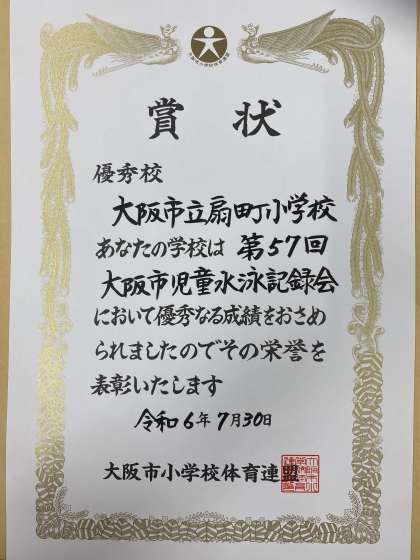 賞状
優秀校
大阪市立扇町小学校
あなたの学校は第57回
大阪市児童水泳記録会
において優秀なる成績をおさめ
られましたのでその栄誉を
表彰いたします
令和6年7月30日
大阪市小学校体育連盟